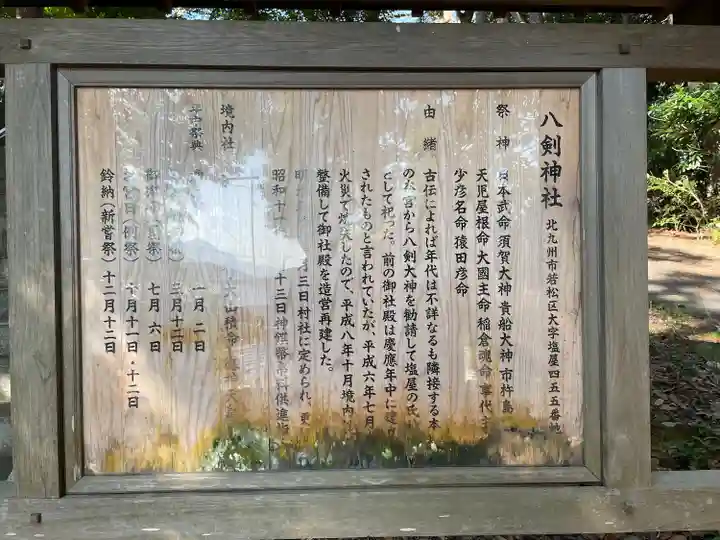 八剣神社 北九州市若松区大字塩屋四五五番地
祭神 日本武命 須賀大神 貴船大神 市杵島
天児屋根命 大國主命 稲倉魂命 事代主
少彦名命 猿田彦命
由緒 古伝によれば年代は不詳なるも隣接する本
の 宮から八剣大神を勧請して塩屋の氏
として祀った。前の御社殿は慶應年中に建
されたものと言われていたが、平成六年七月
火災で焼失したので、平成八年十月境内
整備して御社殿を造営再建した。
明 月三日村社に定められ、更
昭和十 十三日神饌幣帛料供進指
境内社 大山積命
年中祭典 一月二日
三月十二日
御 祭） 七月六日
宮日（例祭） 十月十一日・十二日
鈴納（新嘗祭） 十二月十二日